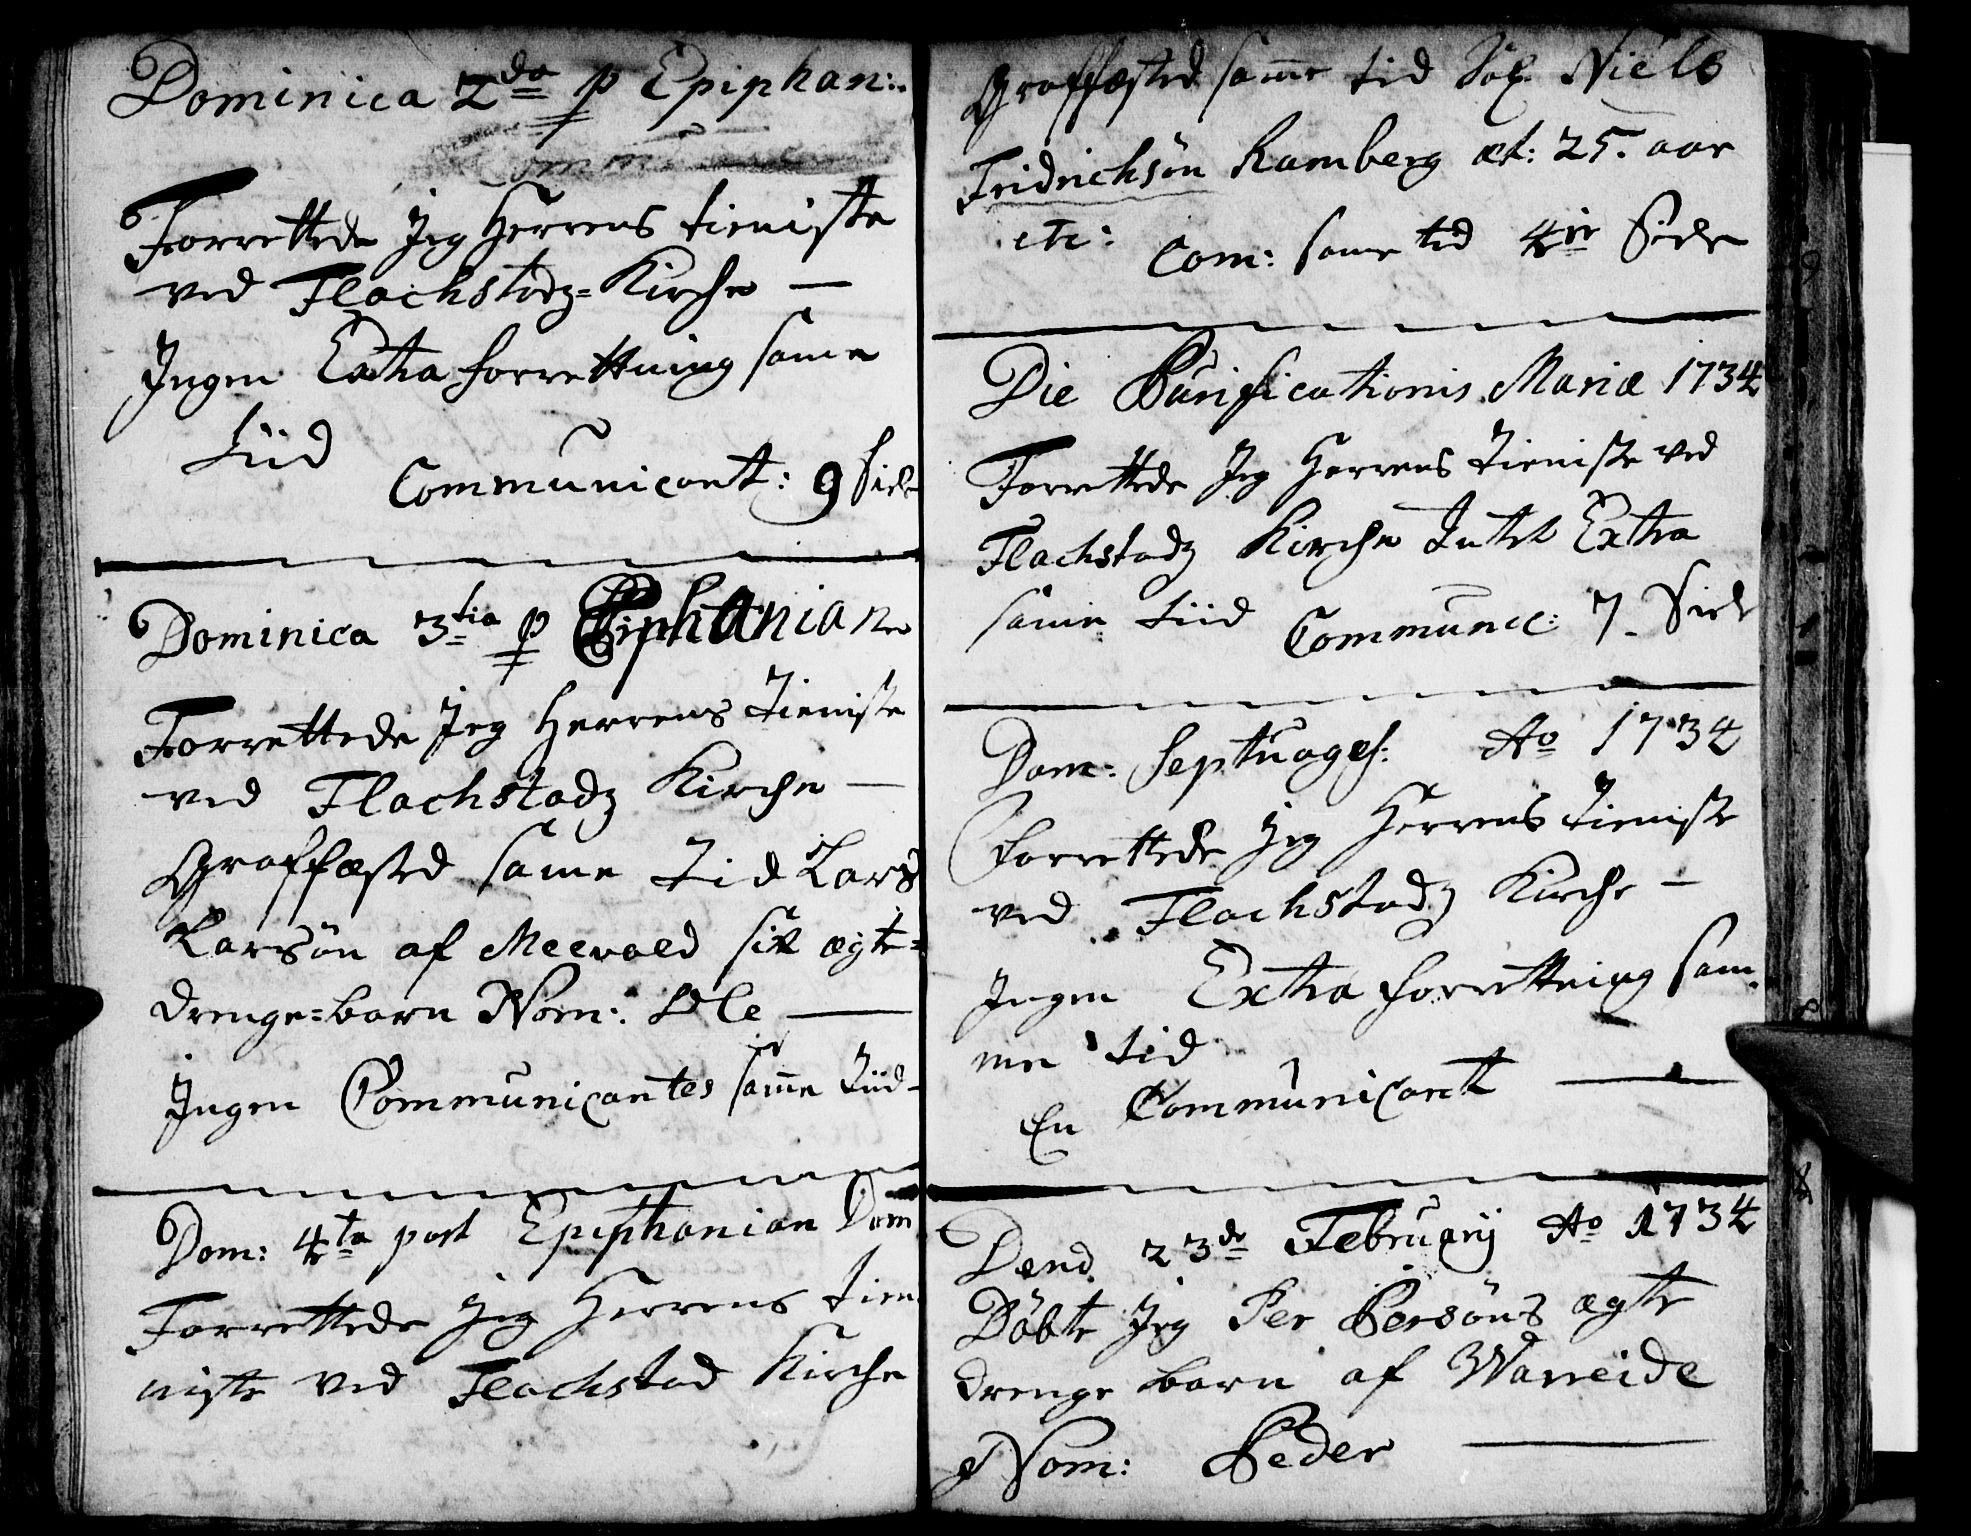 Dominica 2da p Epiphan:
Forrettede Jeg Herrens tieniste
ved Flachstadz=Kirche —
Jngen Extra forrettning same
tiid
Communicant: 9 Siele
Dominica 3tia p Epiphanian
Forrettede Jeg Herrens tieniste
ved Flachstadz Kirche —
Graffæsted same tid Lars
Larsøn af Meevold sit ægte=
drenge=barn Nom: Ole —
Jngen Communicantes same tiid
Dom: 4ta post Epiphanian Dom
Forrettede Jeg Herrens tien
niste ved Flachstad Kirche
Graffæsted same tid Niels
Fridrichsøn Ramberg æt: 25. aar
etc: Com: same tid 4re Siele
Die Purificationis Mariæ 1734
Forrettede Jeg Herrens tieniste ved
Flachstadz Kirche Intet Extra
same tiid Communic: 7 Siele
Dom: Septuages: Ao 1734
Forrettede Jeg Herrens tieniste
ved Flachstadz Kirche —
Jngen Extra forrettning sam
me tid
En Communicant —
Dend 23de February Ao 1734
Døbte Jeg Per Persøns ægte
drenge barn af Wareide
Nom: Peder —